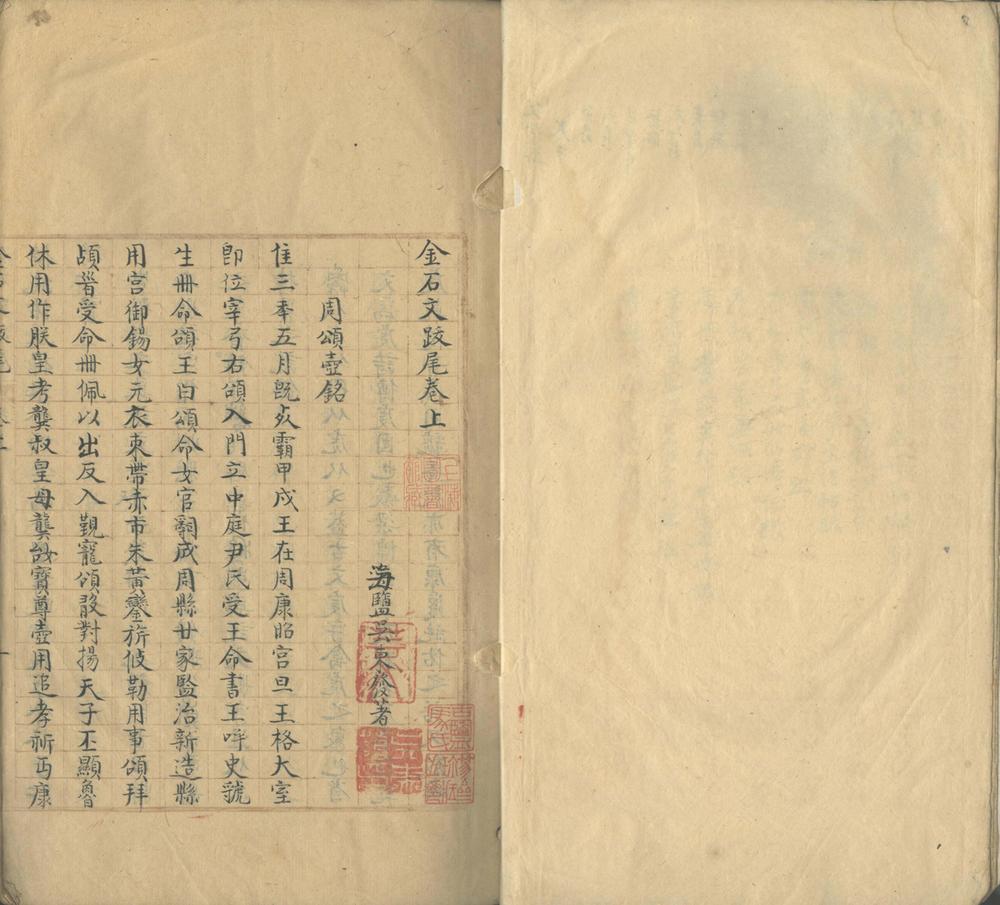 金石文跋尾卷上
海鹽吳東發著
周頌壺銘
隹三年五月旣死霸甲戌王在周康昭宫旦王格大室
卽位宰弓右頌入門立中庭尹氏受王命書王呼史虢
生冊命頌王曰頌命女官嗣成周縣廿家監治新造縣
用宫御錫女元衣朿帶赤市朱黃鑾旂攸勒用事頌拜
頧首受命冊佩以出反入覲寵頌敢對揚天子丕顯魯
休用作朕皇考龔叔皇母龔姒寶尊壺用追孝祈丏康